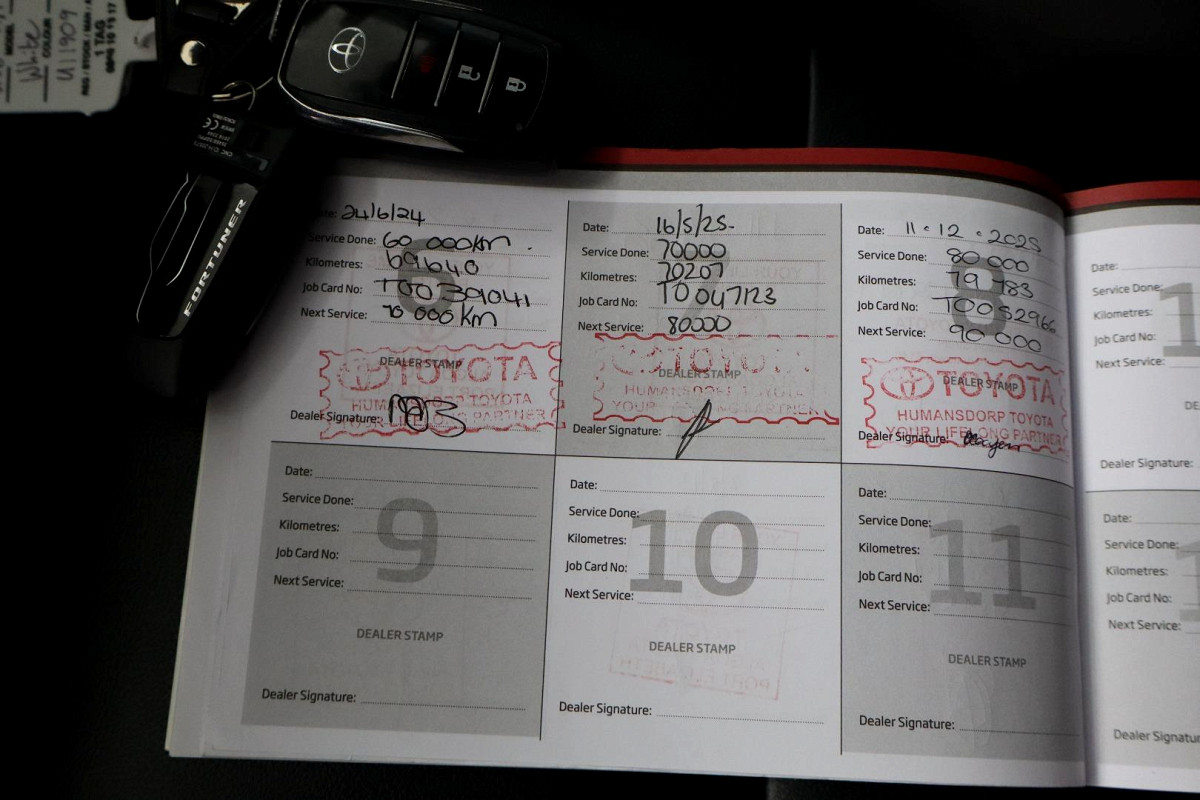 White
COLOUR
U11909
REG / STOCK / MAN / A
1 TAG
FORTUNER
Date: 24/6/24
Service Done: 60 000km
Kilometres: 691640
Job Card No: T00391041
Next Service: 70 000km
6
DEALER STAMP
TOYOTA
HUMANSDORP TOYOTA
YOUR LIFELONG PARTNER
Dealer Signature:
Date: 16/5/25-
Service Done: 70000
Kilometres: 70207
Job Card No: T0047123
Next Service: 80000
7
DEALER STAMP
TOYOTA
HUMANSDORP TOYOTA
YOUR LIFELONG PARTNER
Dealer Signature:
Date: 11.12.2025
Service Done: 80 000
Kilometres: 79 783
Job Card No: T0052966
Next Service: 90 000
8
DEALER STAMP
TOYOTA
HUMANSDORP TOYOTA
YOUR LIFELONG PARTNER
Dealer Signature:
Date:
Service Done:
Kilometres:
Job Card No:
Next Service:
Dealer Signature:
Date:
Service Done:
Kilometres:
Job Card No:
Next Service:
9
DEALER STAMP
Dealer Signature:
Date:
Service Done:
Kilometres:
Job Card No:
Next Service:
10
DEALER STAMP
Dealer Signature:
Date:
Service Done:
Kilometres:
Job Card No:
Next Service:
11
DEALER STAMP
Dealer Signature:
Date:
Service Done:
Kilometres:
Job Card No:
Next Service:
Dealer Signature: